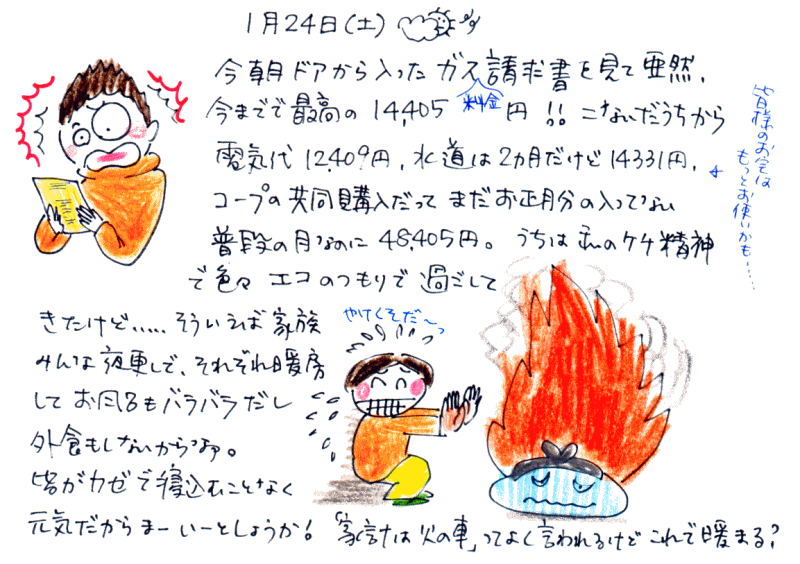 1月24日(土)
今朝ドアから入ったガス料金請求書を見て亜然、
今までで最高の14,405円!!こないだうちから
電気代12,409円、水道は2カ月だけど14331円、
コープの共同購入だってまだお正月分の入ってない
普段の月なのに48,405円。うちは私のケチ精神
で色々エコのつもりで過ごして
きたけど.....そういえば家族
みんな夜更しで、それぞれ暖房
してお風呂もバラバラだし
外食もしないからなァ。
皆がカゼで寝込むことなく
元気だからまーいーとしようか!「家計は火の車」ってよく言われるけどこれで暖まる?
皆様のお宅は
もっとお使いかも……
やけくそだ〜っ